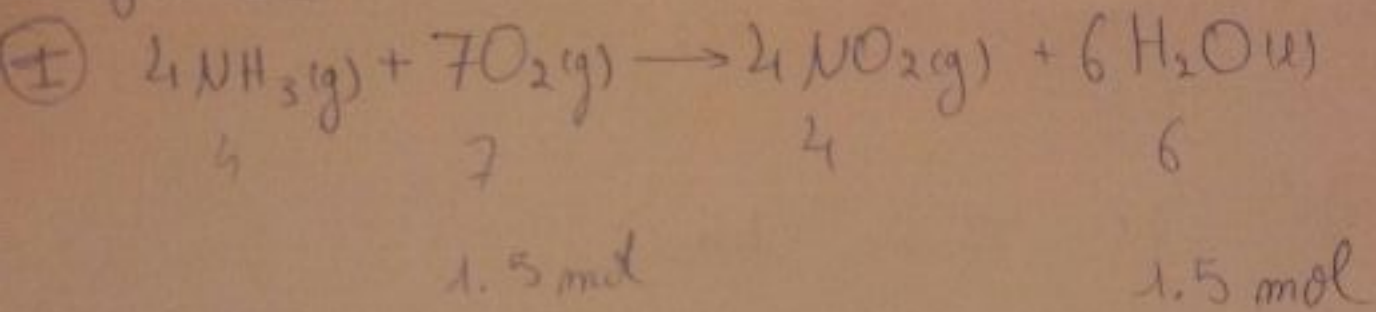 I 4NH₃(g) + 7O₂(g) → 4NO₂(g) + 6H₂O(l)
4 7 4 6
1.5 mol 1.5 mol